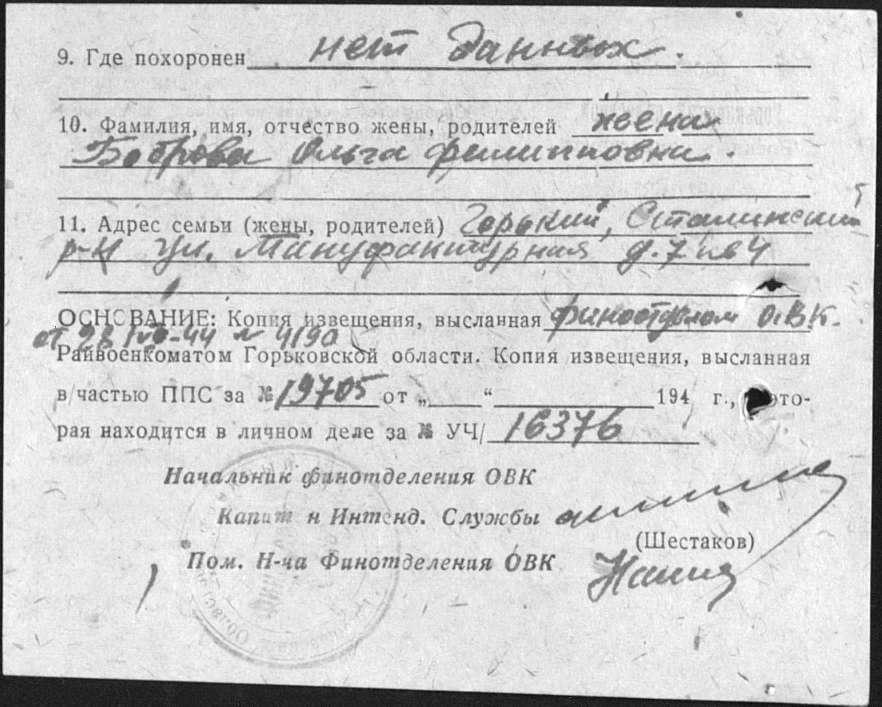 9. Где похоронен нет данных.
10. Фамилия, имя, отчество жены, родителей жена
Боброва Ольга Филипповна.
11. Адрес семьи (жены, родителей) Горький, Сталинский
р-н ул. Мануфактурная д. 7 кв 4
ОСНОВАНИЕ: Копия извещения, высланная финотделом ОВК.
от 28 44 № 4190
Райвоенкоматом Горьковской области. Копия извещения, высланная
в/частью ППС за № 19705 от „ “ 194 г., кото-
рая находится в личном деле за № УЧ/ 16376
Начальник финотделения ОВК
Капитан Интенд. Службы
(Шестаков)
Пом. Н-ча Финотделения ОВК